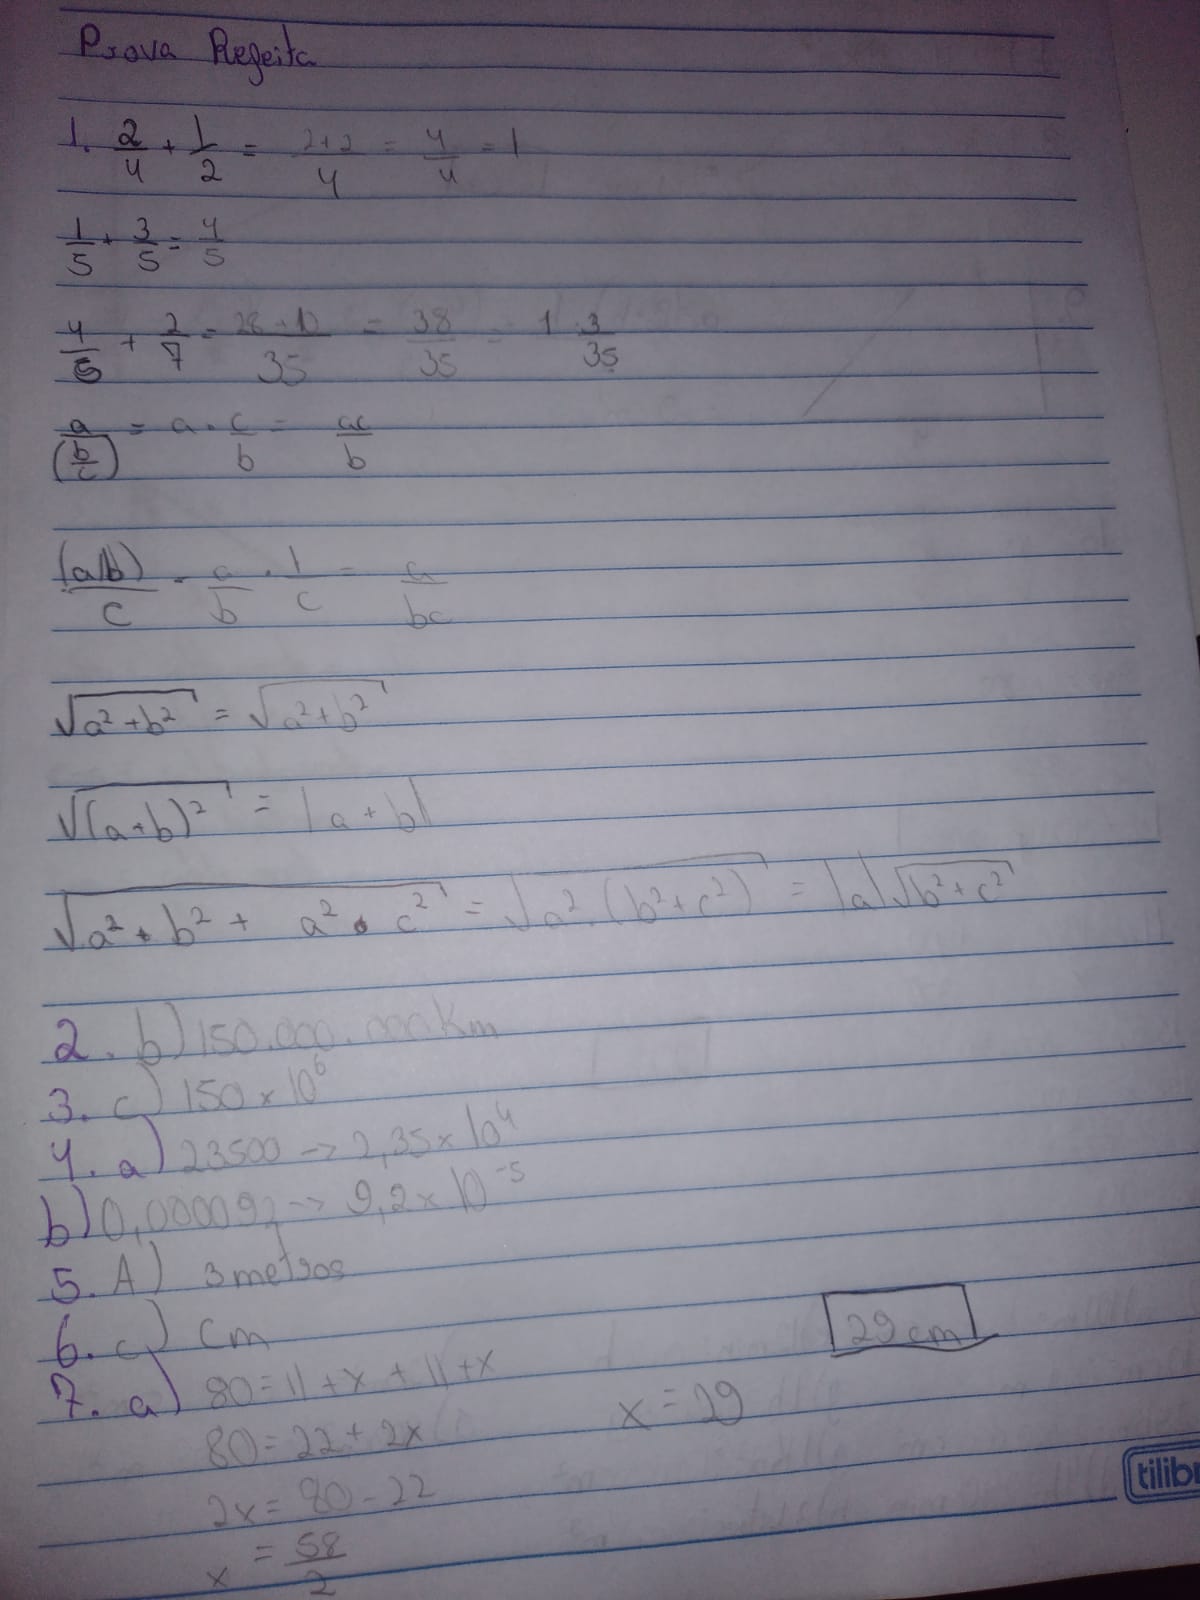 Prova Refeita
1. 2/4 + 1/2 = 2+2/4 = 4/4 = 1
1/5 + 3/5 = 4/5
4/5 + 2/7 = 28+10/35 = 38/35 = 1 3/35
a/(b/c) = a · c/b = ac/b
(a/b)/c = a/b · 1/c = a/bc
√a²+b² = √a²+b²
√(a+b)² = |a+b|
√a² · b² + a² · c² = √a² · (b²+c²) = |a|√b²+c²
2. b) 150.000.000 Km
3. c) 150 x 10⁶
4. a) 23500 → 2,35 x 10⁴
b) 0,000092 → 9,2 x 10⁻⁵
5. A) 3 metros
6. c) cm
29 cm
7. a) 80 = 11 + x + 11 + x
x = 29
80 = 22 + 2x
2x = 80 - 22
x = 58/2
tilibr